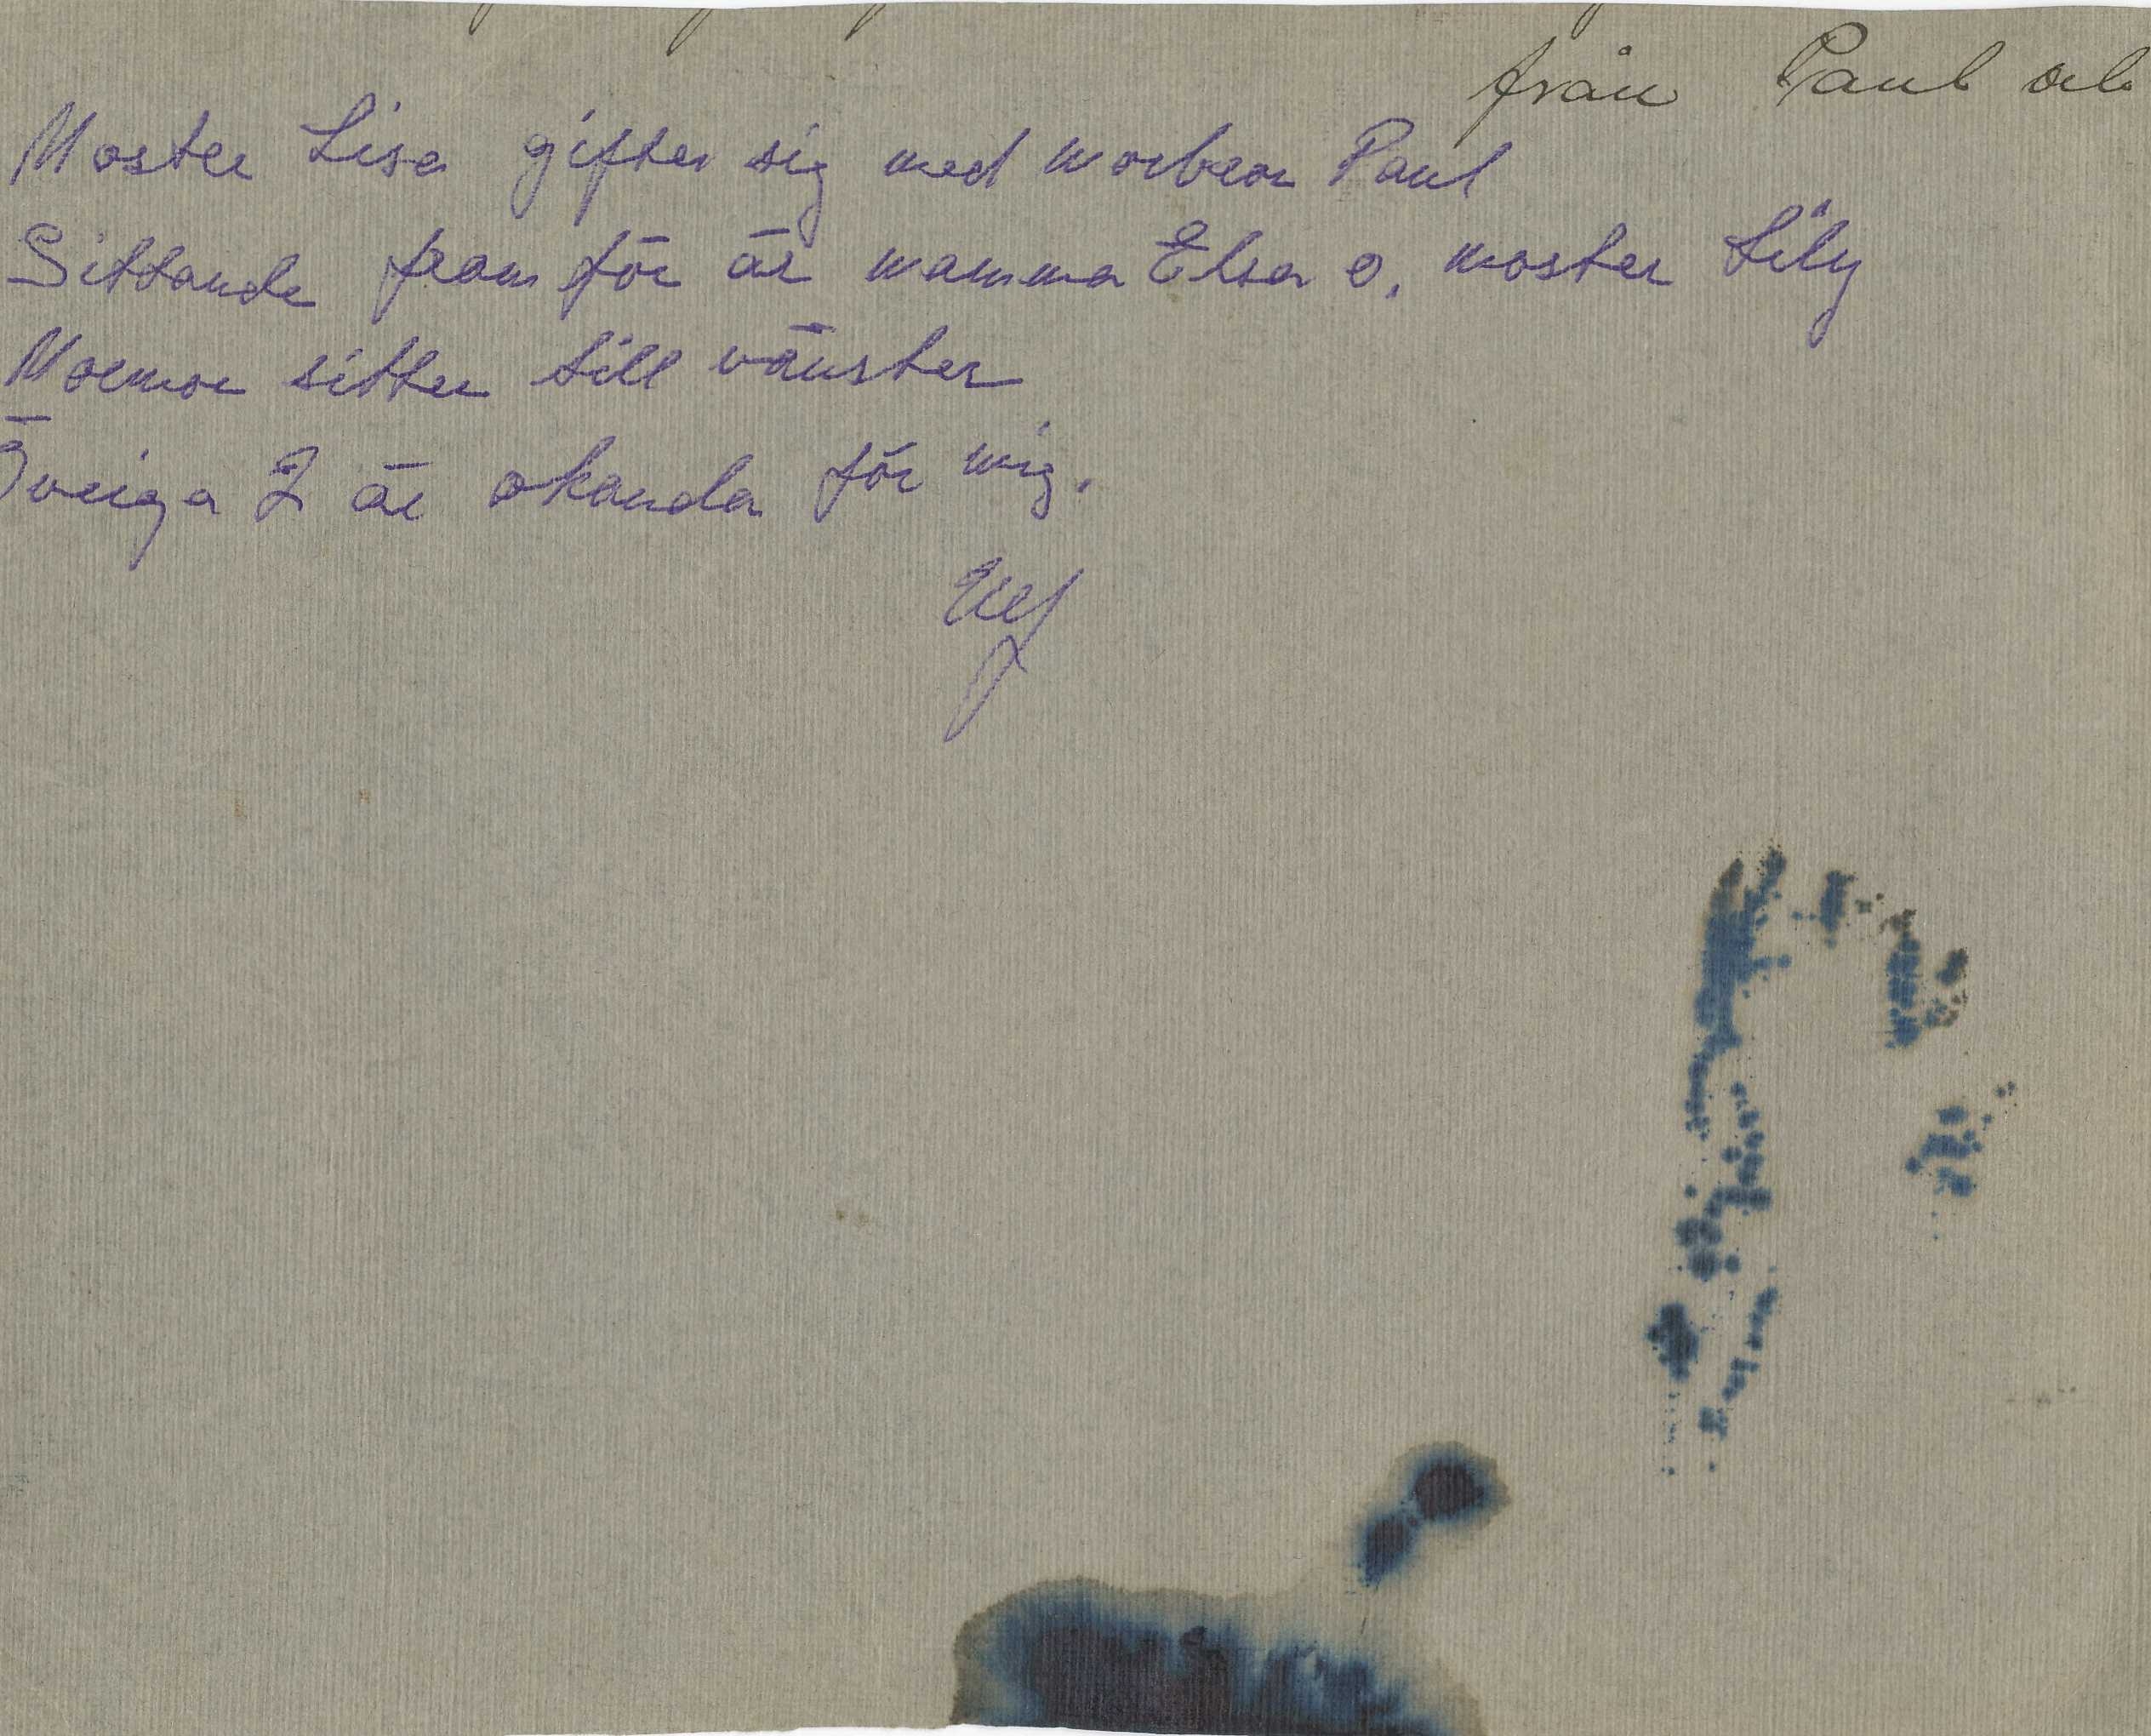 från Paul och
Moster Lisa gifter sig med morbror Paul
Sittande framför är mamma Elsa o. moster Lily
Mormor sitter till vänster
Övriga 2 är okända för mig.
Ulf